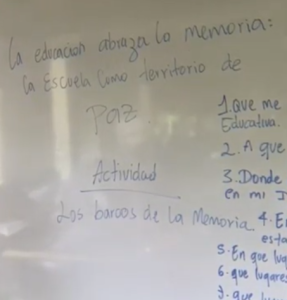 La educación abraza la memoria:
La Escuela como territorio de
Paz.
Actividad
Los barcos de la Memoria
1. Que me
Educativa.
2. A que
3. Donde
en mi I
4. En
esta
5. En que lug
6. que lugares
7. que lu